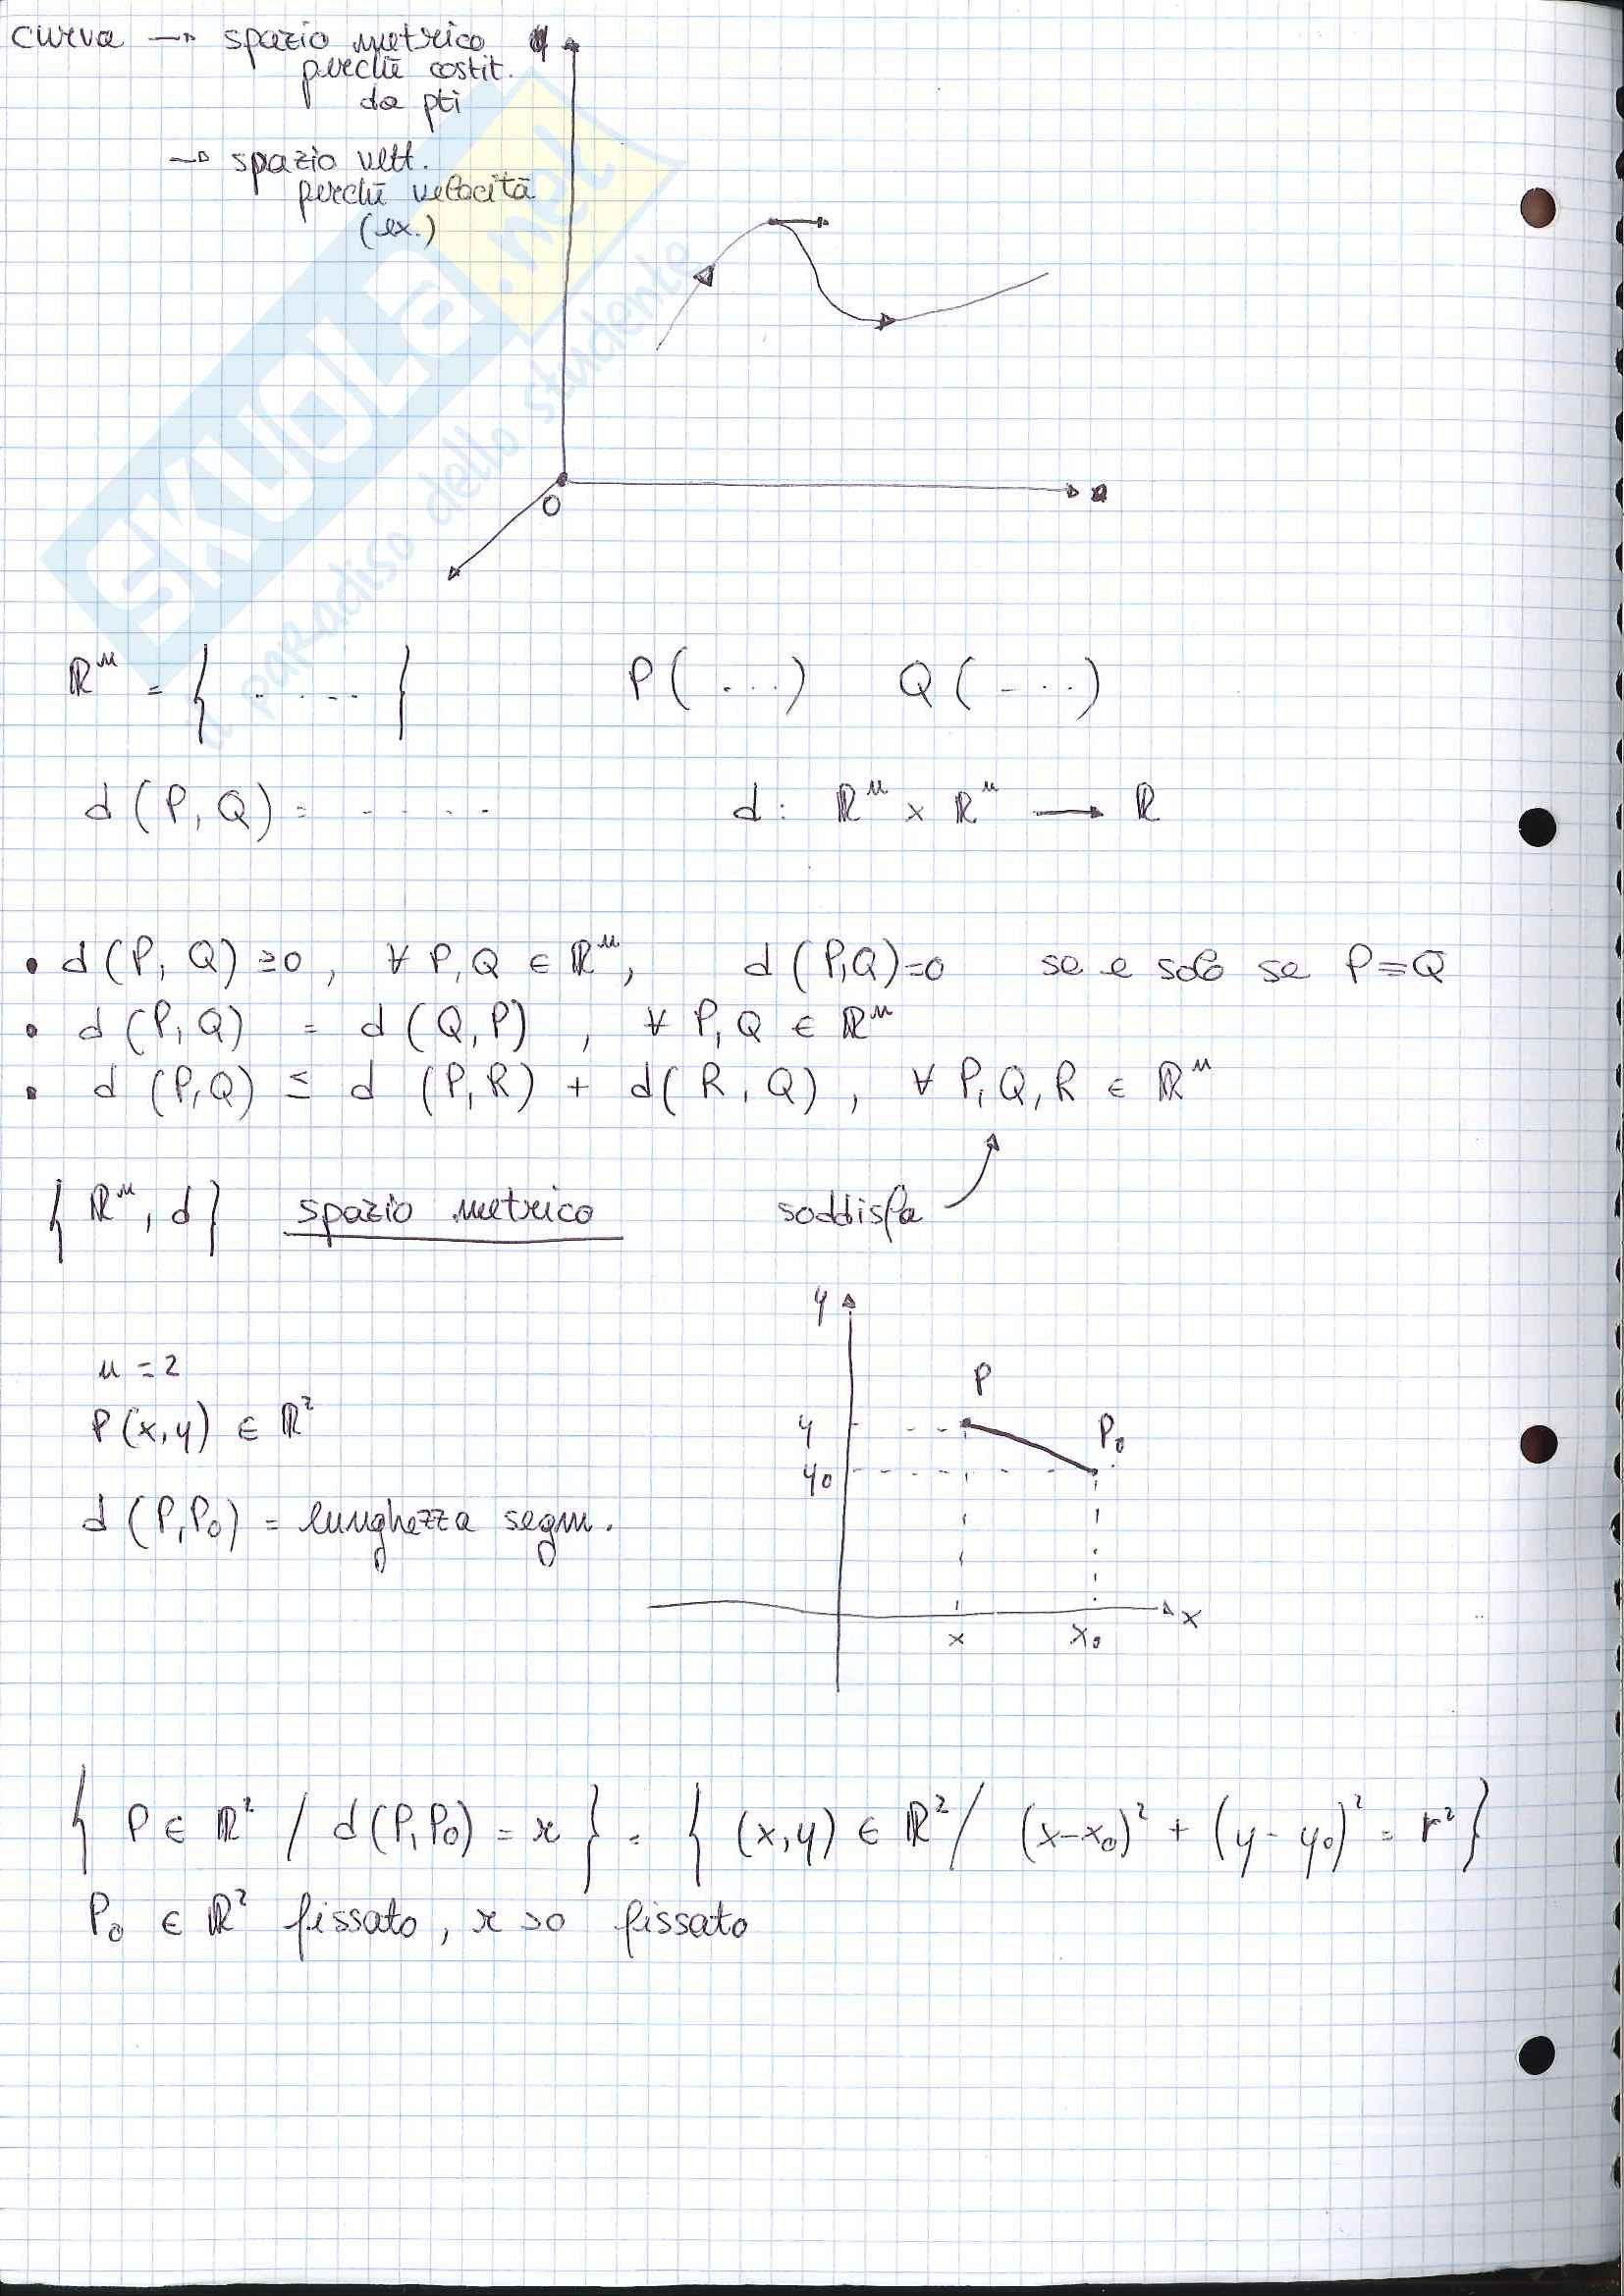 curva → spazio metrico
perchè costit.
da pti
→ spazio vett.
perchè velocità
(ex.)
SKUOLA.net
il paradiso dello studente
O
ℝⁿ = { . . . . . } P(...) Q(- ...)
d(P,Q) = - - - - d: ℝⁿ × ℝⁿ → ℝ
• d(P,Q) ≥0, ∀ P,Q ∈ ℝⁿ, d(P,Q)=0 se e solo se P=Q
• d(P,Q) = d(Q,P), ∀ P,Q ∈ ℝⁿ
• d(P,Q) ≤ d(P,R) + d(R,Q), ∀ P,Q,R ∈ ℝⁿ
{ℝⁿ, d} spazio metrico soddisfa
y
n = 2
P
P(x,y) ∈ ℝ²
y
P₀
y₀
d(P,P₀) = lunghezza segm.
x
x x₀
{P ∈ ℝ² / d(P,P₀) = r} = {(x,y) ∈ ℝ² / (x-x₀)² + (y-y₀)² = r²}
P₀ ∈ ℝ² fissato, r >0 fissato